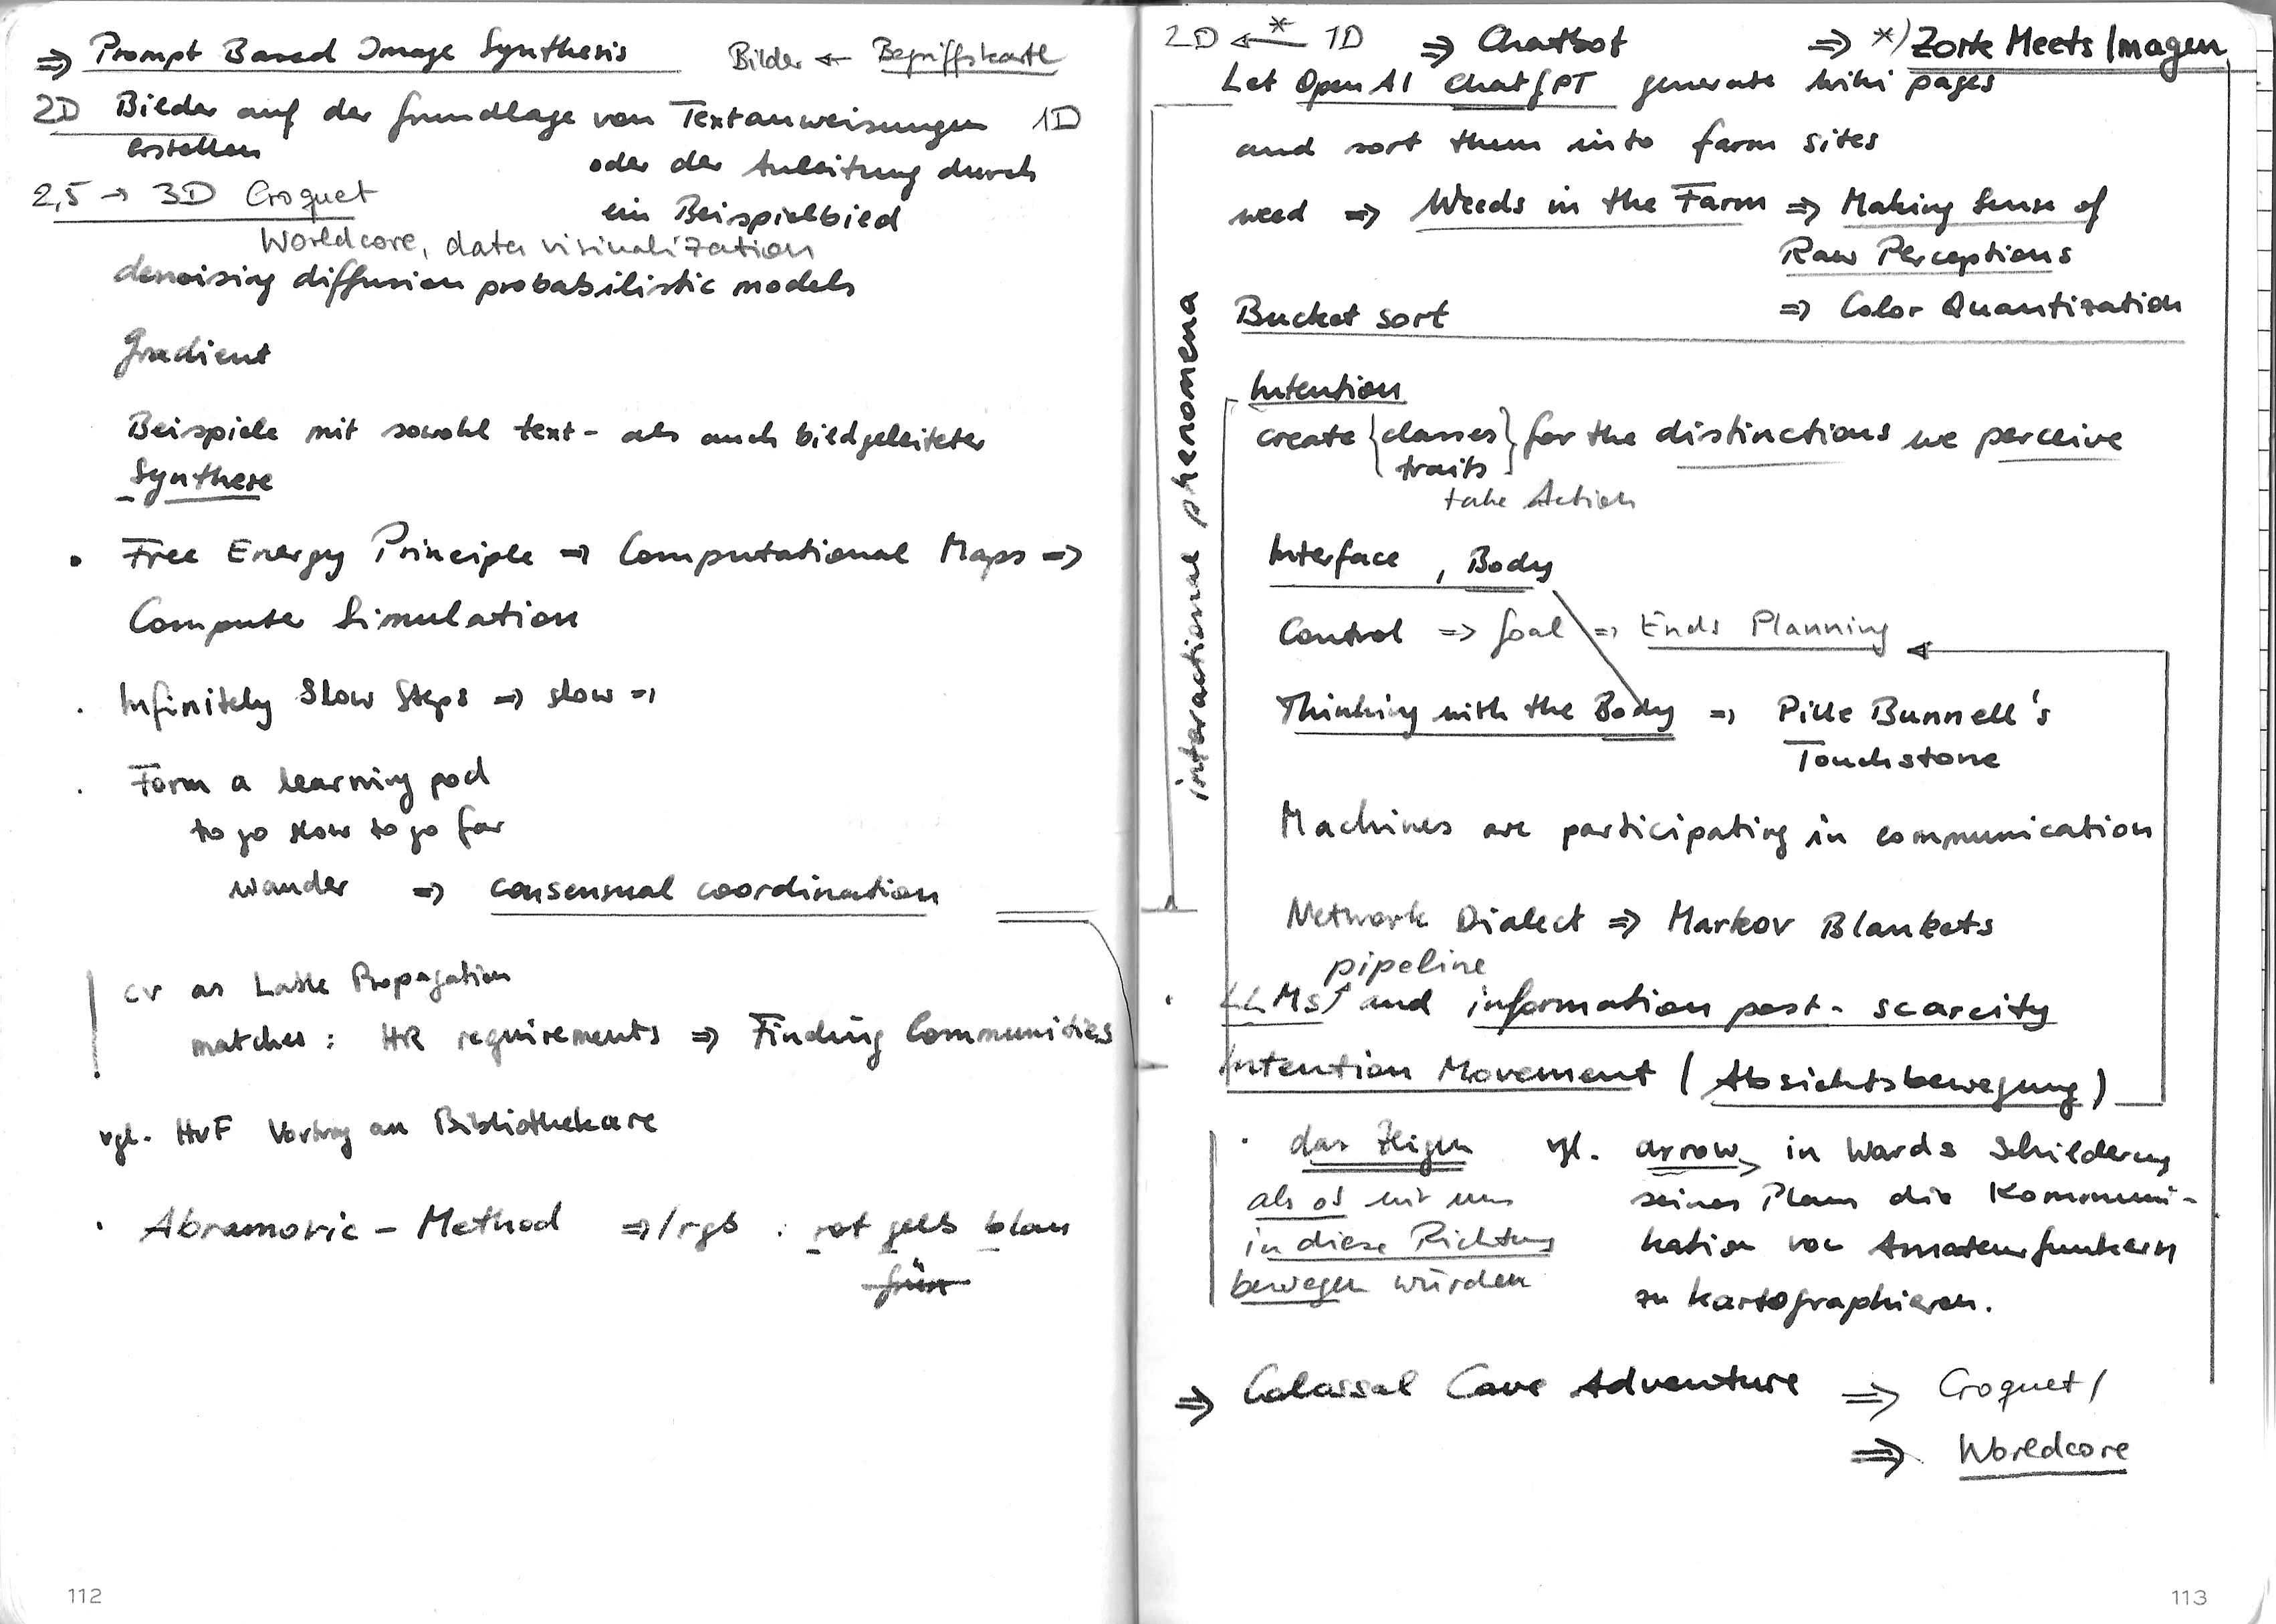 ⇒ Prompt Based Image Synthesis Bilder ← Begriffskarte
2D Bilder auf der Grundlage von Textanweisungen 1D
erstellen oder der Anleitung durch
2,5 → 3D Croquet ein Beispielbild
Worldcore, data visualization
denoising diffusion probabilistic models
Gradient
Beispiele mit sowohl text- als auch bildgeleiteter
Synthese
• Free Energy Principle ⇒ Computational Maps ⇒
Computer Simulation
• Infinitely Slow Steps ⇒ slow ⇒
• Form a learning pod
to go slow to go far
wander ⇒ consensual coordination
CV as Propagation
matches: HR requirements ⇒ Finding Communities
vgl. HvF Vortrag an Bibliothekare
• Abramovic-Method ⇒ /rgb : rot gelb blau
grün
112
2D ←* 1D ⇒ Chatbot ⇒ *) Zork Meets Imagen
Let OpenAI ChatGPT generate wiki pages
and sort them into farm sites
weed ⇒ Weeds in the Farm ⇒ Making Sense of
Raw Perceptions
Bucket sort ⇒ Color Quantization
interactional phenomena
Intention
create {classes} for the distinctions we perceive
traits
take Action
Interface, Body
Control ⇒ Goal ⇒ Ends Planning
Thinking with the Body ⇒ Pille Bunnell's
Touchstone
Machines are participating in communication
Network Dialect ⇒ Markov Blankets
pipeline
• LLMs and information post-scarcity
Intention Movement (Absichtsbewegung)
• das Zeigen vgl. arrow in Wards Schilderung
als ob wir uns seines Plans die Kommuni-
in diese Richtung kation von Amateurfunkern
bewegen würden zu kartographieren.
⇒ Colossal Cave Adventure ⇒ Croquet/
⇒ Worldcore
113